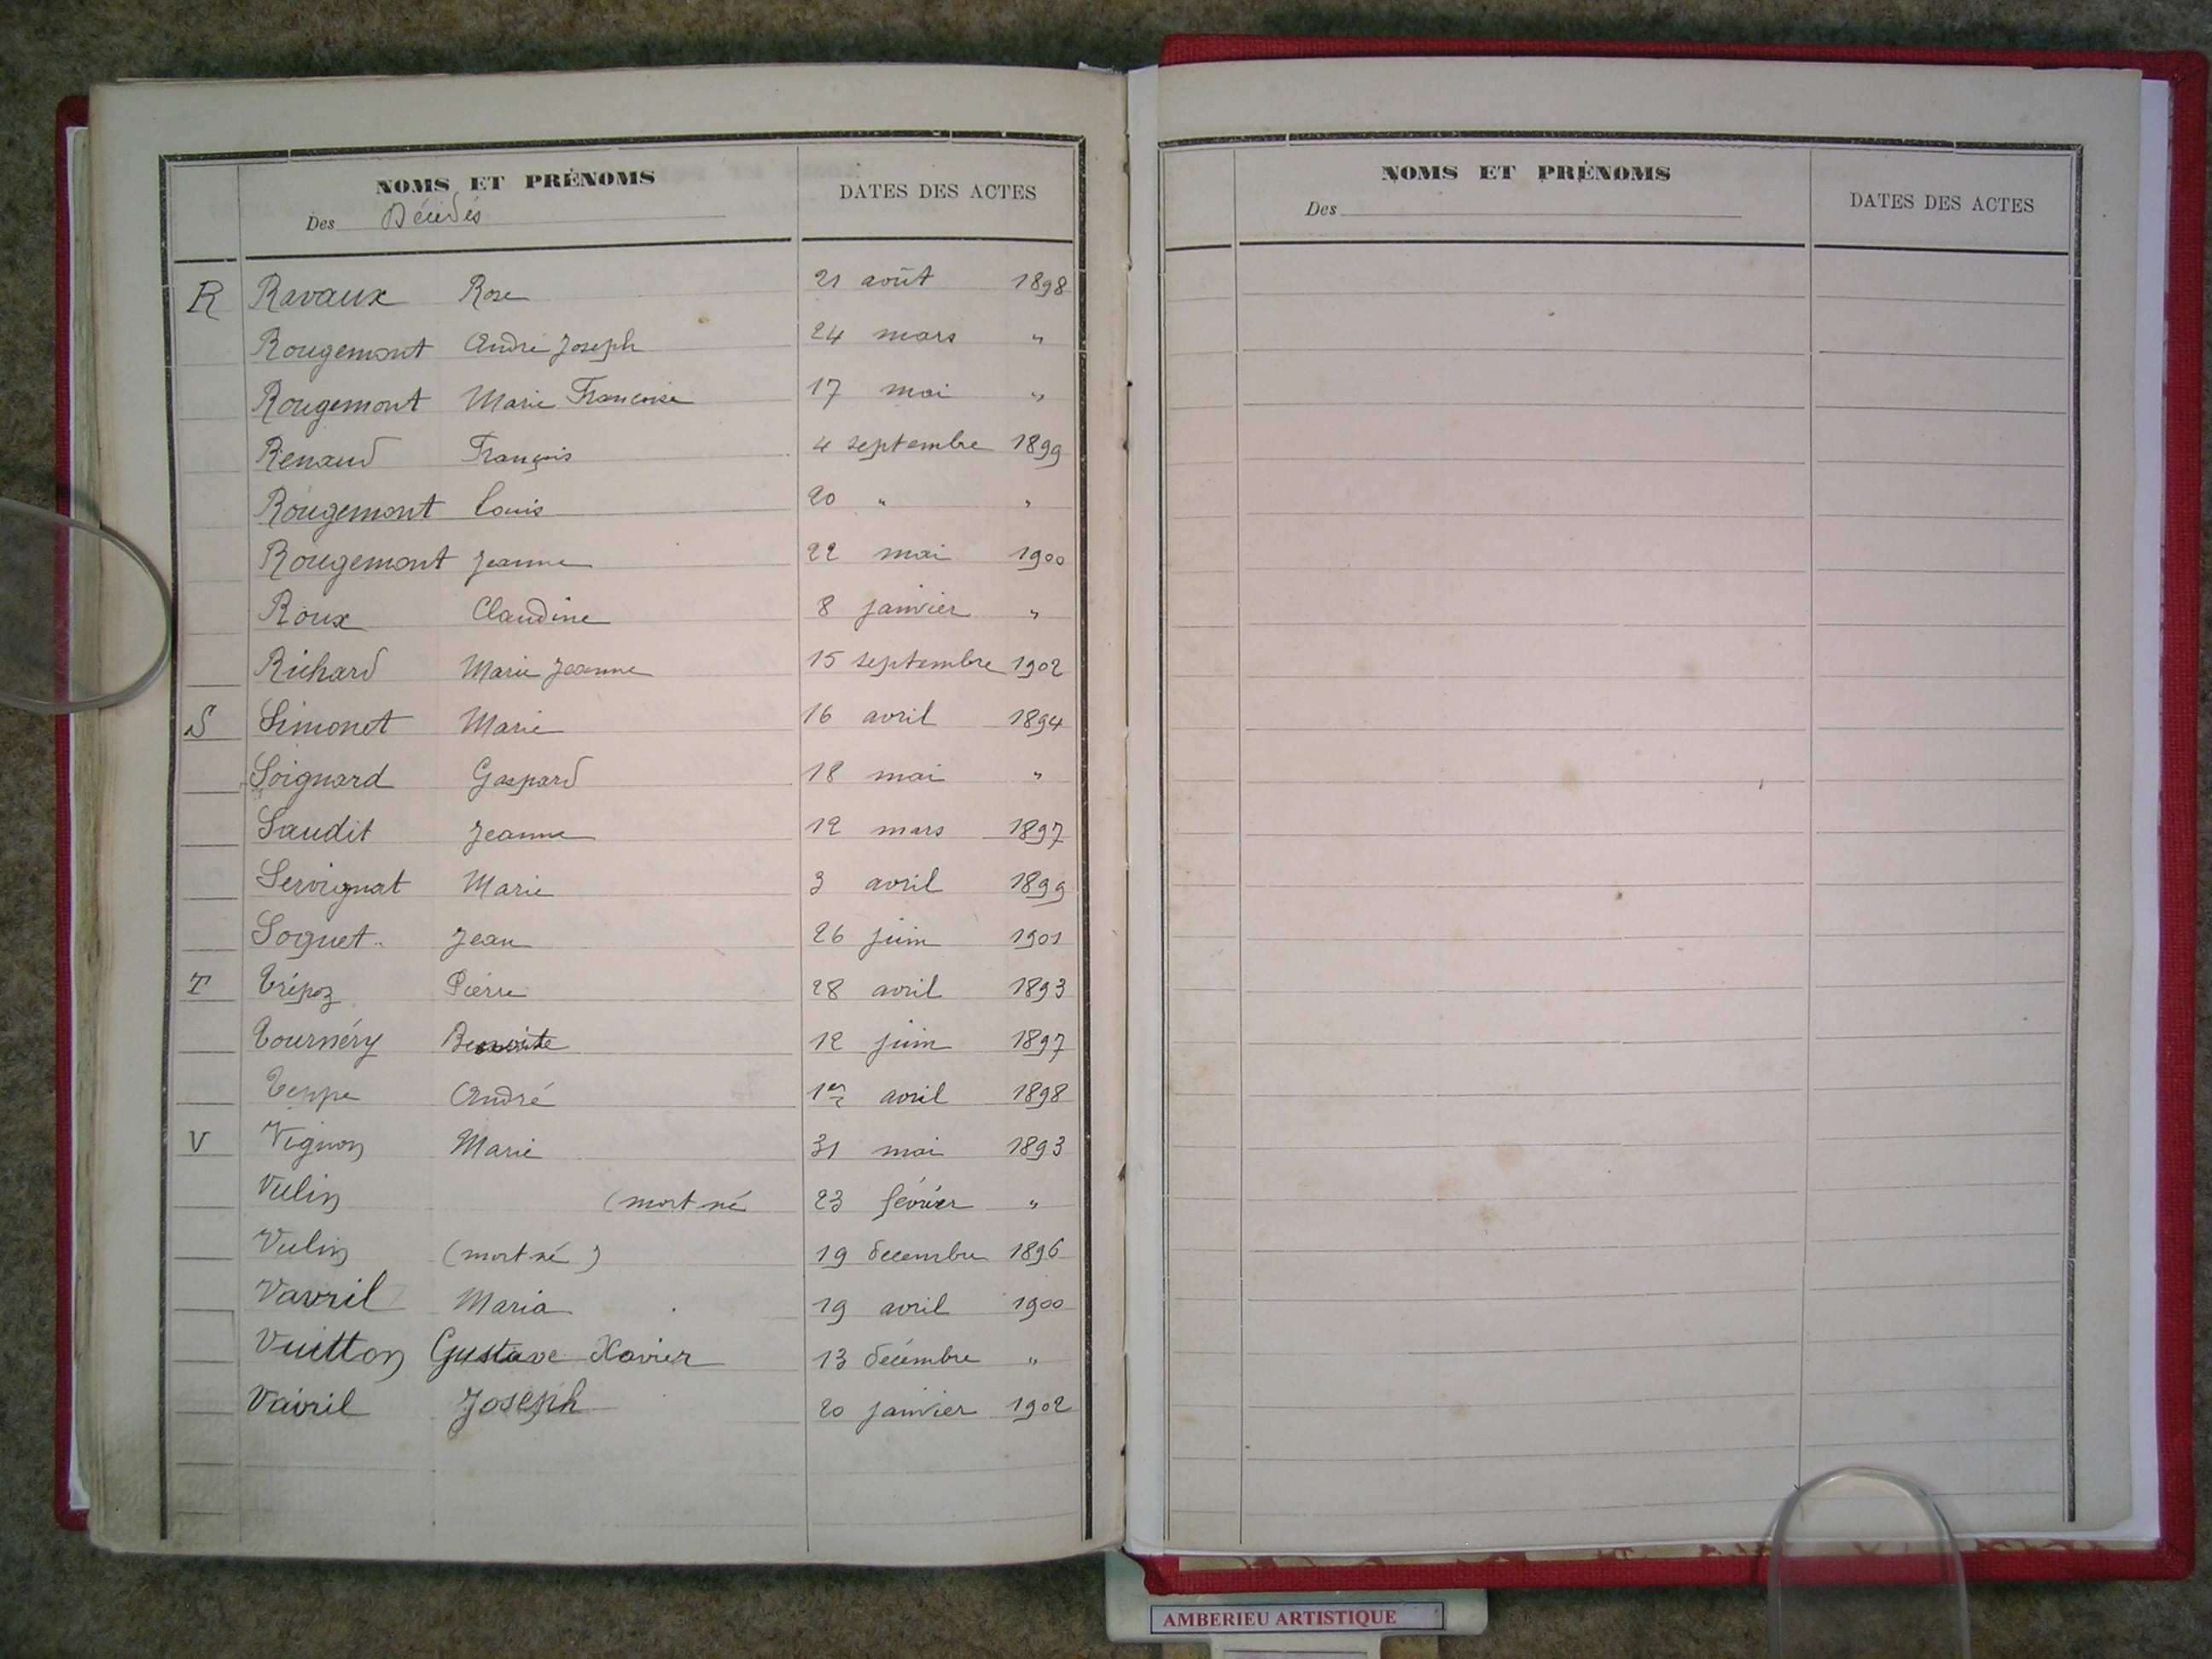 NOMS ET PRÉNOMS
DATES DES ACTES
Des Décédés
R Ravaux Rose 21 août 1898
Rougemont André Joseph 24 mars "
Rougemont Marie Françoise 17 mai "
Renaud François 4 septembre 1899
Rougemont Louis 20 " "
Rougemont Jeanne 22 mai 1900
Roux Claudine 8 janvier "
Richard Marie Jeanne 15 septembre 1902
S Simonet Marie 16 avril 1894
Soignard Gaspard 18 mai "
Saudit Jeanne 12 mars 1897
Servignat Marie 3 avril 1899
Soguet Jean 26 juin 1901
T Trépoz Pierre 28 avril 1893
Tournéry Benoite 12 juin 1897
Teppe André 1er avril 1898
V Vignon Marie 31 mai 1893
Vulin (mort né 23 février "
Vulin (mort né) 19 décembre 1896
Vavril Maria 19 avril 1900
Vuitton Gustave Xavier 13 décembre "
Vavril Joseph 20 janvier 1902
NOMS ET PRÉNOMS
DATES DES ACTES
Des
AMBERIEU ARTISTIQUE